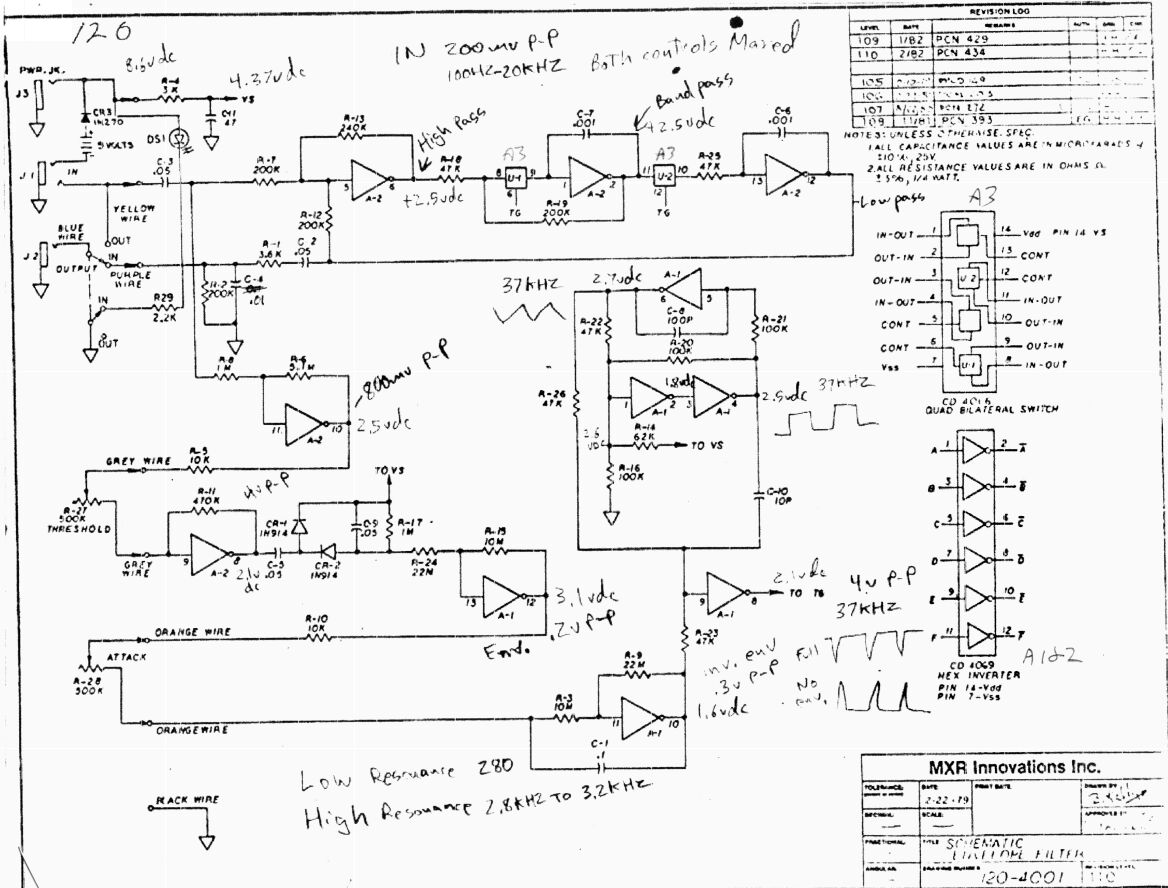 120
IN 200mv P-P
100HZ-20KHZ Both controls Maxed
REVISION LOG
LEVEL DATE REMARKS
109 1/82 PCN 429
110 2/82 PCN 434
105
106
107 PCN 272
109 11/81 PCN 393
NOTES: UNLESS OTHERWISE SPEC.
1. ALL CAPACITANCE VALUES ARE IN MICROFARADS
±10%, 25V.
2. ALL RESISTANCE VALUES ARE IN OHMS Ω
±5%, 1/4 WATT.
PWR. JK.
J3
8.6vdc
R-4
3K
4.37vdc
VS
C-11
47
CR3
1N270
9 VOLTS
DS1
J1
IN
C-3
.05
YELLOW
WIRE
BLUE
WIRE
J2
OUTPUT
OUT
IN
PURPLE
WIRE
IN
OUT
R29
2.2K
R-2
200K
C-4
.01
R-1
3.6K
C-2
.05
R-7
200K
R-12
200K
R-13
240K
5 6
A-2
High Pass
+2.5vdc
R-18
47K
A3
8 U-1 9
6
TG
C-7
.001
1 2
A-2
R-19
200K
Band pass
+2.5vdc
A3
11 U-2 10
12
TG
R-25
47K
C-6
.001
13 12
A-2
Low pass
A3
IN-OUT 1
OUT-IN 2
OUT-IN 3
IN-OUT 4
CONT 5
CONT 6
Vss 7
14 Vdd PIN 14 VS
13 CONT
12 CONT
11 IN-OUT
10 OUT-IN
9 OUT-IN
8 IN-OUT
U-2
U-1
CD 4016
QUAD BILATERAL SWITCH
37KHZ
2.7vdc
A-1
6 5
C-8
100P
R-22
47K
R-21
100K
R-20
100K
R-26
47K
1.8vdc
1 A-1 2 3 A-1 4
2.5vdc 37KHZ
2.6
VDC
R-14
62K
TO VS
R-16
100K
C-10
10P
R-8
1M
R-6
5.1M
~800mv P-P
11 10
A-2
2.5vdc
GREY WIRE
R-5
10K
R-27
500K
THRESHOLD
GREY
WIRE
4v P-P
R-11
470K
9 8
A-2
2.1v
dc
C-5
.05
CR-1
1N914
CR-2
1N914
TO VS
C-9
.05
R-17
1M
R-24
22M
R-15
10M
13 12
A-1
3.1vdc
.2v P-P
R-10
10K
ORANGE WIRE
ATTACK
R-28
500K
ORANGE WIRE
9 8
A-1
2.1vdc
TO TG
4v P-P
37KHZ
R-23
47K
inv. env
.3v P-P
1.6vdc
Full
No
env.
R-9
22M
R-3
10M
11 10
A-1
C-1
.1
A 1 2 A
B 3 4 B
C 5 6 C
D 7 8 D
E 9 10 E
F 11 12 F
CD 4069
HEX INVERTER
PIN 14-Vdd
PIN 7-Vss
A1&2
Low Resonance 280
High Resonance 2.8KHZ TO 3.2KHZ
BLACK WIRE
MXR Innovations Inc.
TOLERANCE DATE PRINT DATE DRAWN BY
2-22-79
DECIMAL SCALE APPROVED BY
FRACTIONAL TITLE SCHEMATIC
ENVELOPE FILTER
ANGULAR DRAWING NUMBER
120-4001 110